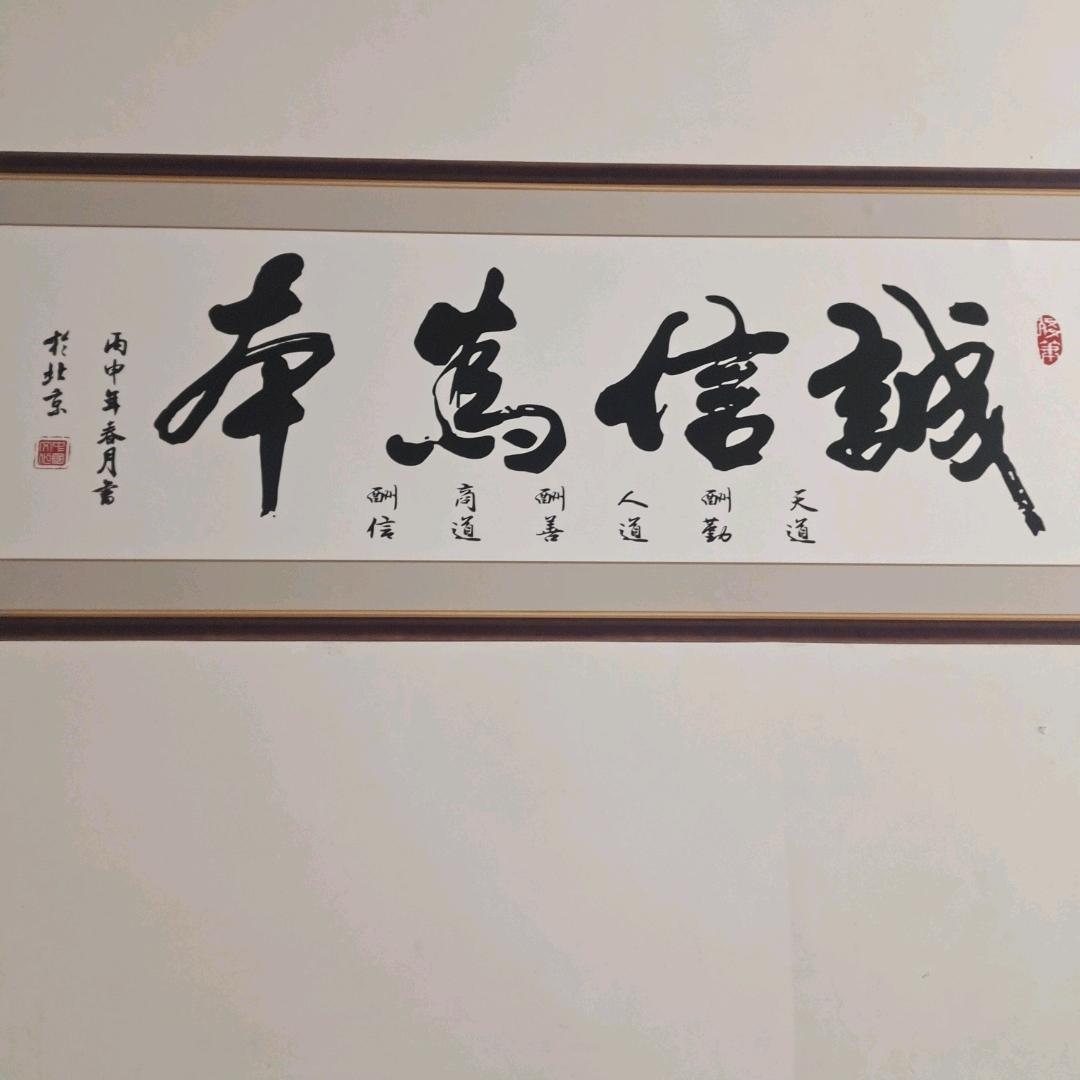 誠信為本
天道
酬勤
人道
酬善
商道
酬信
丙申年春月書
於北京